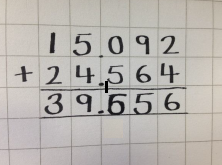 15.092
+ 24.564
39.656